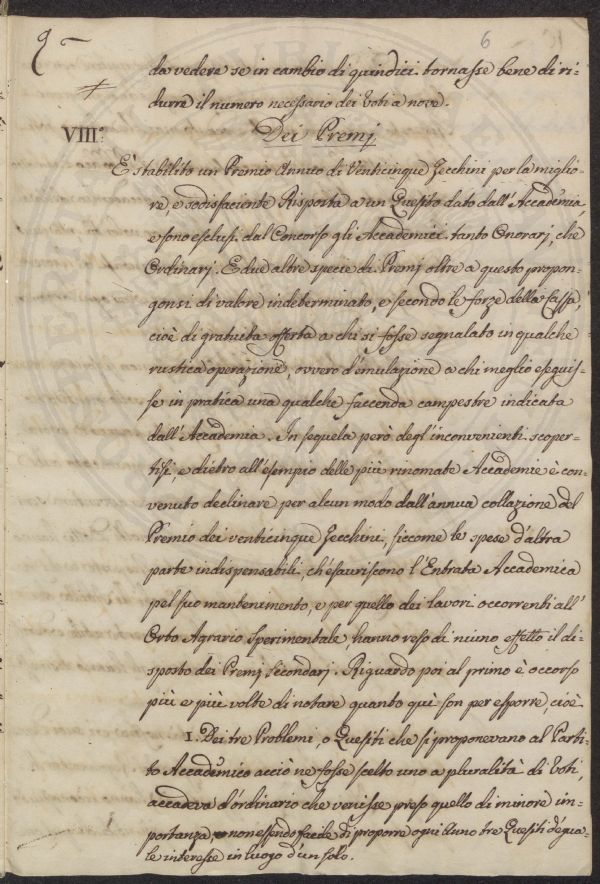 6
da vedere se in cambio di quindici tornasse bene di ri-
durre il numero necessario dei Voti a nove.
VIII.° Dei Premj
È stabilito un Premio Annuo di Venticinque Zecchini per la miglio-
re, e sodisfaciente Risposta a un Quesito dato dall'Accademia,
e sono esclusi dal Concorso gli Accademici tanto Onorarj, che
Ordinarj. E due altre specie di Premj oltre a questo propon-
gonsi di valore indeterminato, e secondo le forze della Cassa,
cioè di gratuita offerta a chi si fosse segnalato in qualche
rustica operazione, ovvero d'emulazione a chi meglio eseguis-
se in pratica una qualche faccenda campestre indicata
dall'Accademia. In sequela però degl'inconvenienti scoper-
tisi, e dietro all'esempio delle più rinomate Accademie è con-
venuto declinare per alcun modo dall'annua collazione del
Premio dei venticinque Zecchini, siccome le spese d'altra
parte indispensabili, ch'esauriscono l'Entrata Accademica
pel suo mantenimento, e per quello dei lavori occorrenti all'
Orto Agrario Sperimentale, hanno reso di niuno effetto il di-
sposto dei Premj Secondarj. Riguardo poi al primo è occorso
più e più volte di notare quanto quì son per esporre, cioè
1. Dei tre Problemi, o Quesiti che si proponevano al Parti-
to Accademico acciò ne fosse scelto uno a pluralità di Voti,
accadeva d'ordinario che venisse preso quello di minore im-
portanza, non essendo facile di proporre ogni Anno tre Quesiti d'egua-
le interesse in luogo d'un solo.